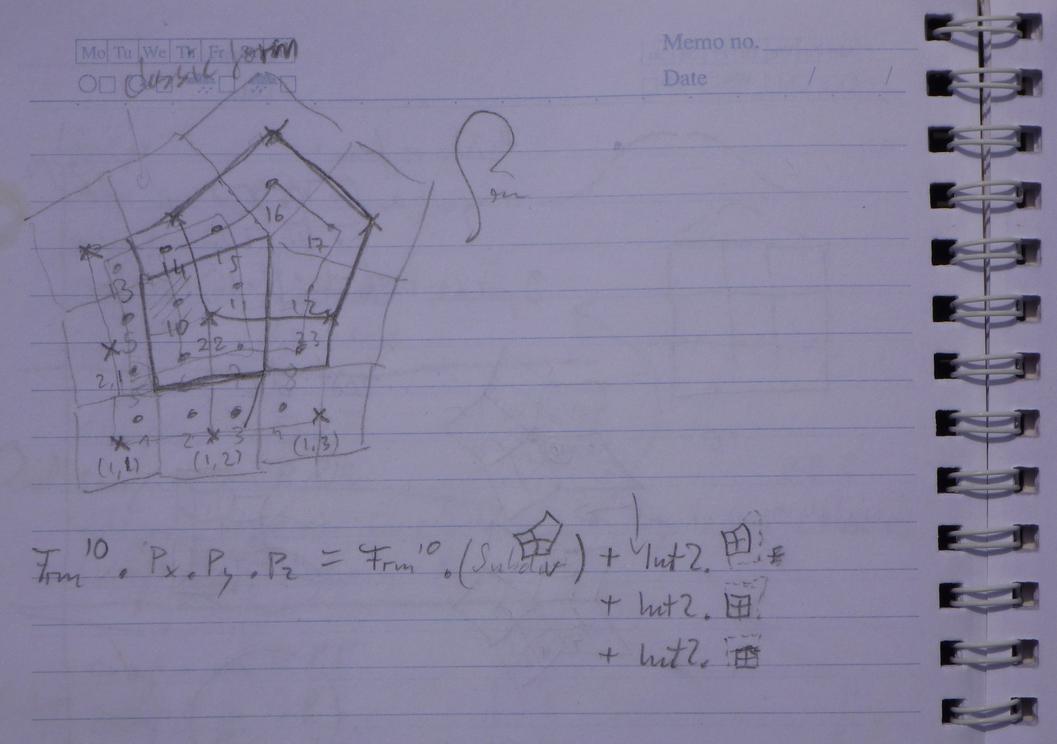 Mo Tu We Th Fr
Memo no.
Date / /
16
17
14
15
13
11
12
10
5
22
33
2,1
1 2 3 4
(1,1) (1,2) (1,3)
Frm¹⁰ . Px . Py . Pz = Frm¹⁰ . (Subdiv) + Int2.
+ Int2.
+ Int2.